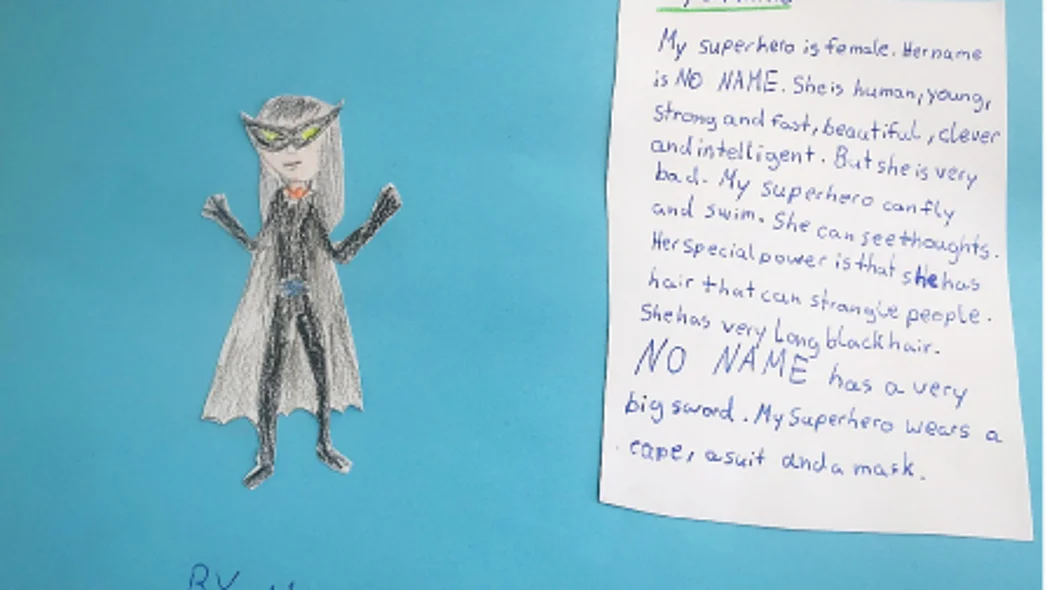 My superhero is female. Her name
is NO NAME. She is human, young,
strong and fast, beautiful, clever
and intelligent. But she is very
bad. My superhero can fly
and swim. She can see thoughts.
Her special power is that she has
hair that can strangle people.
She has very Long black hair.
NO NAME has a very
big sword. My Superhero wears a
cape, a suit and a mask.
BY